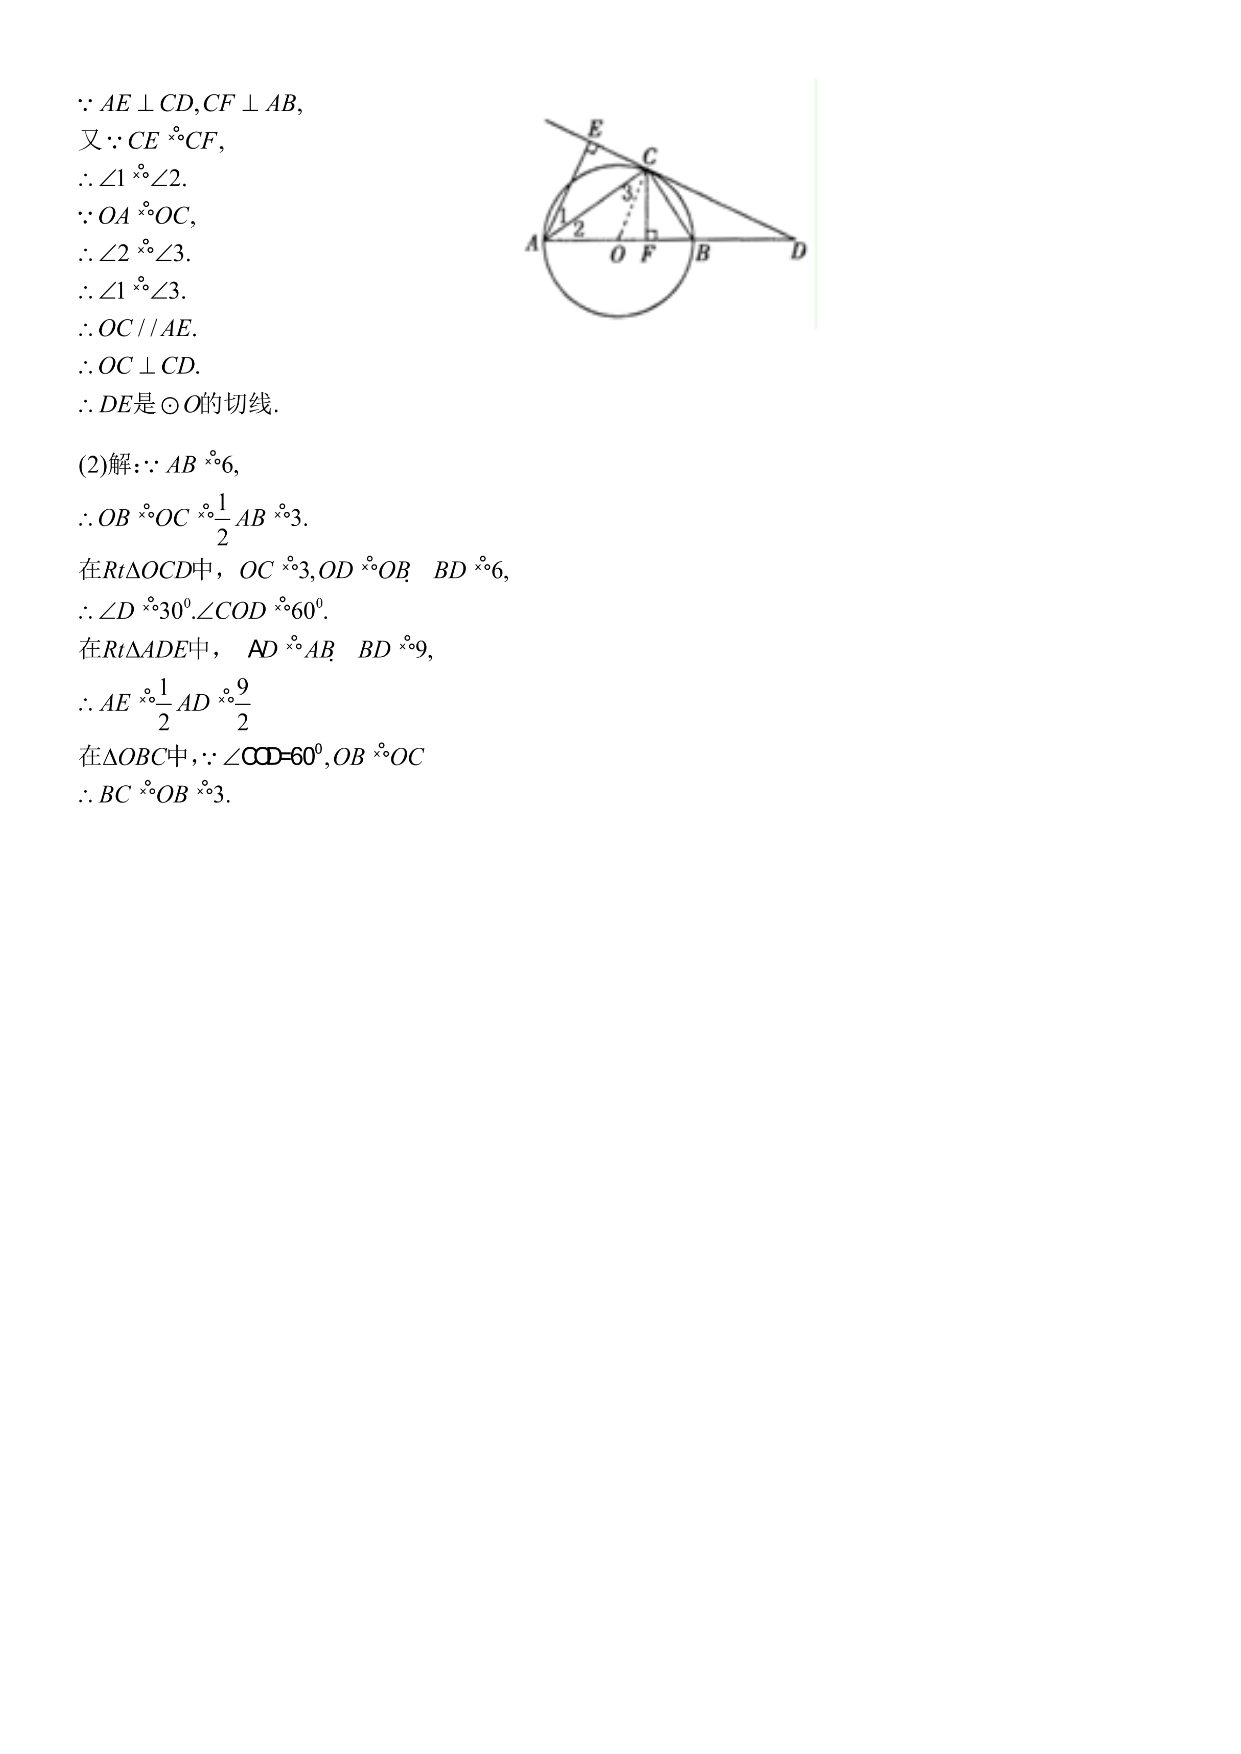 ∵ AE ⊥ CD, CF ⊥ AB,
又∵ CE ×°°CF,
∴ ∠1 ×°°∠2.
∵ OA ×°°OC,
∴ ∠2 ×°°∠3.
∴ ∠1 ×°°∠3.
∴ OC // AE.
∴ OC ⊥ CD.
∴ DE是⊙O的切线.
E
C
3
1
2
A
O
F
B
D
(2)解:∵ AB ×°°6,
∴ OB ×°°OC ×°°1/2 AB ×°°3.
在RtΔOCD中，OC ×°°3, OD ×°°OB. BD ×°°6,
∴ ∠D ×°°30⁰.∠COD ×°°60⁰.
在RtΔADE中， AD ×°°AB. BD ×°°9,
∴ AE ×°°1/2 AD ×°°9/2
在ΔOBC中,∵ ∠COD=60⁰, OB ×°°OC
∴ BC ×°°OB ×°°3.